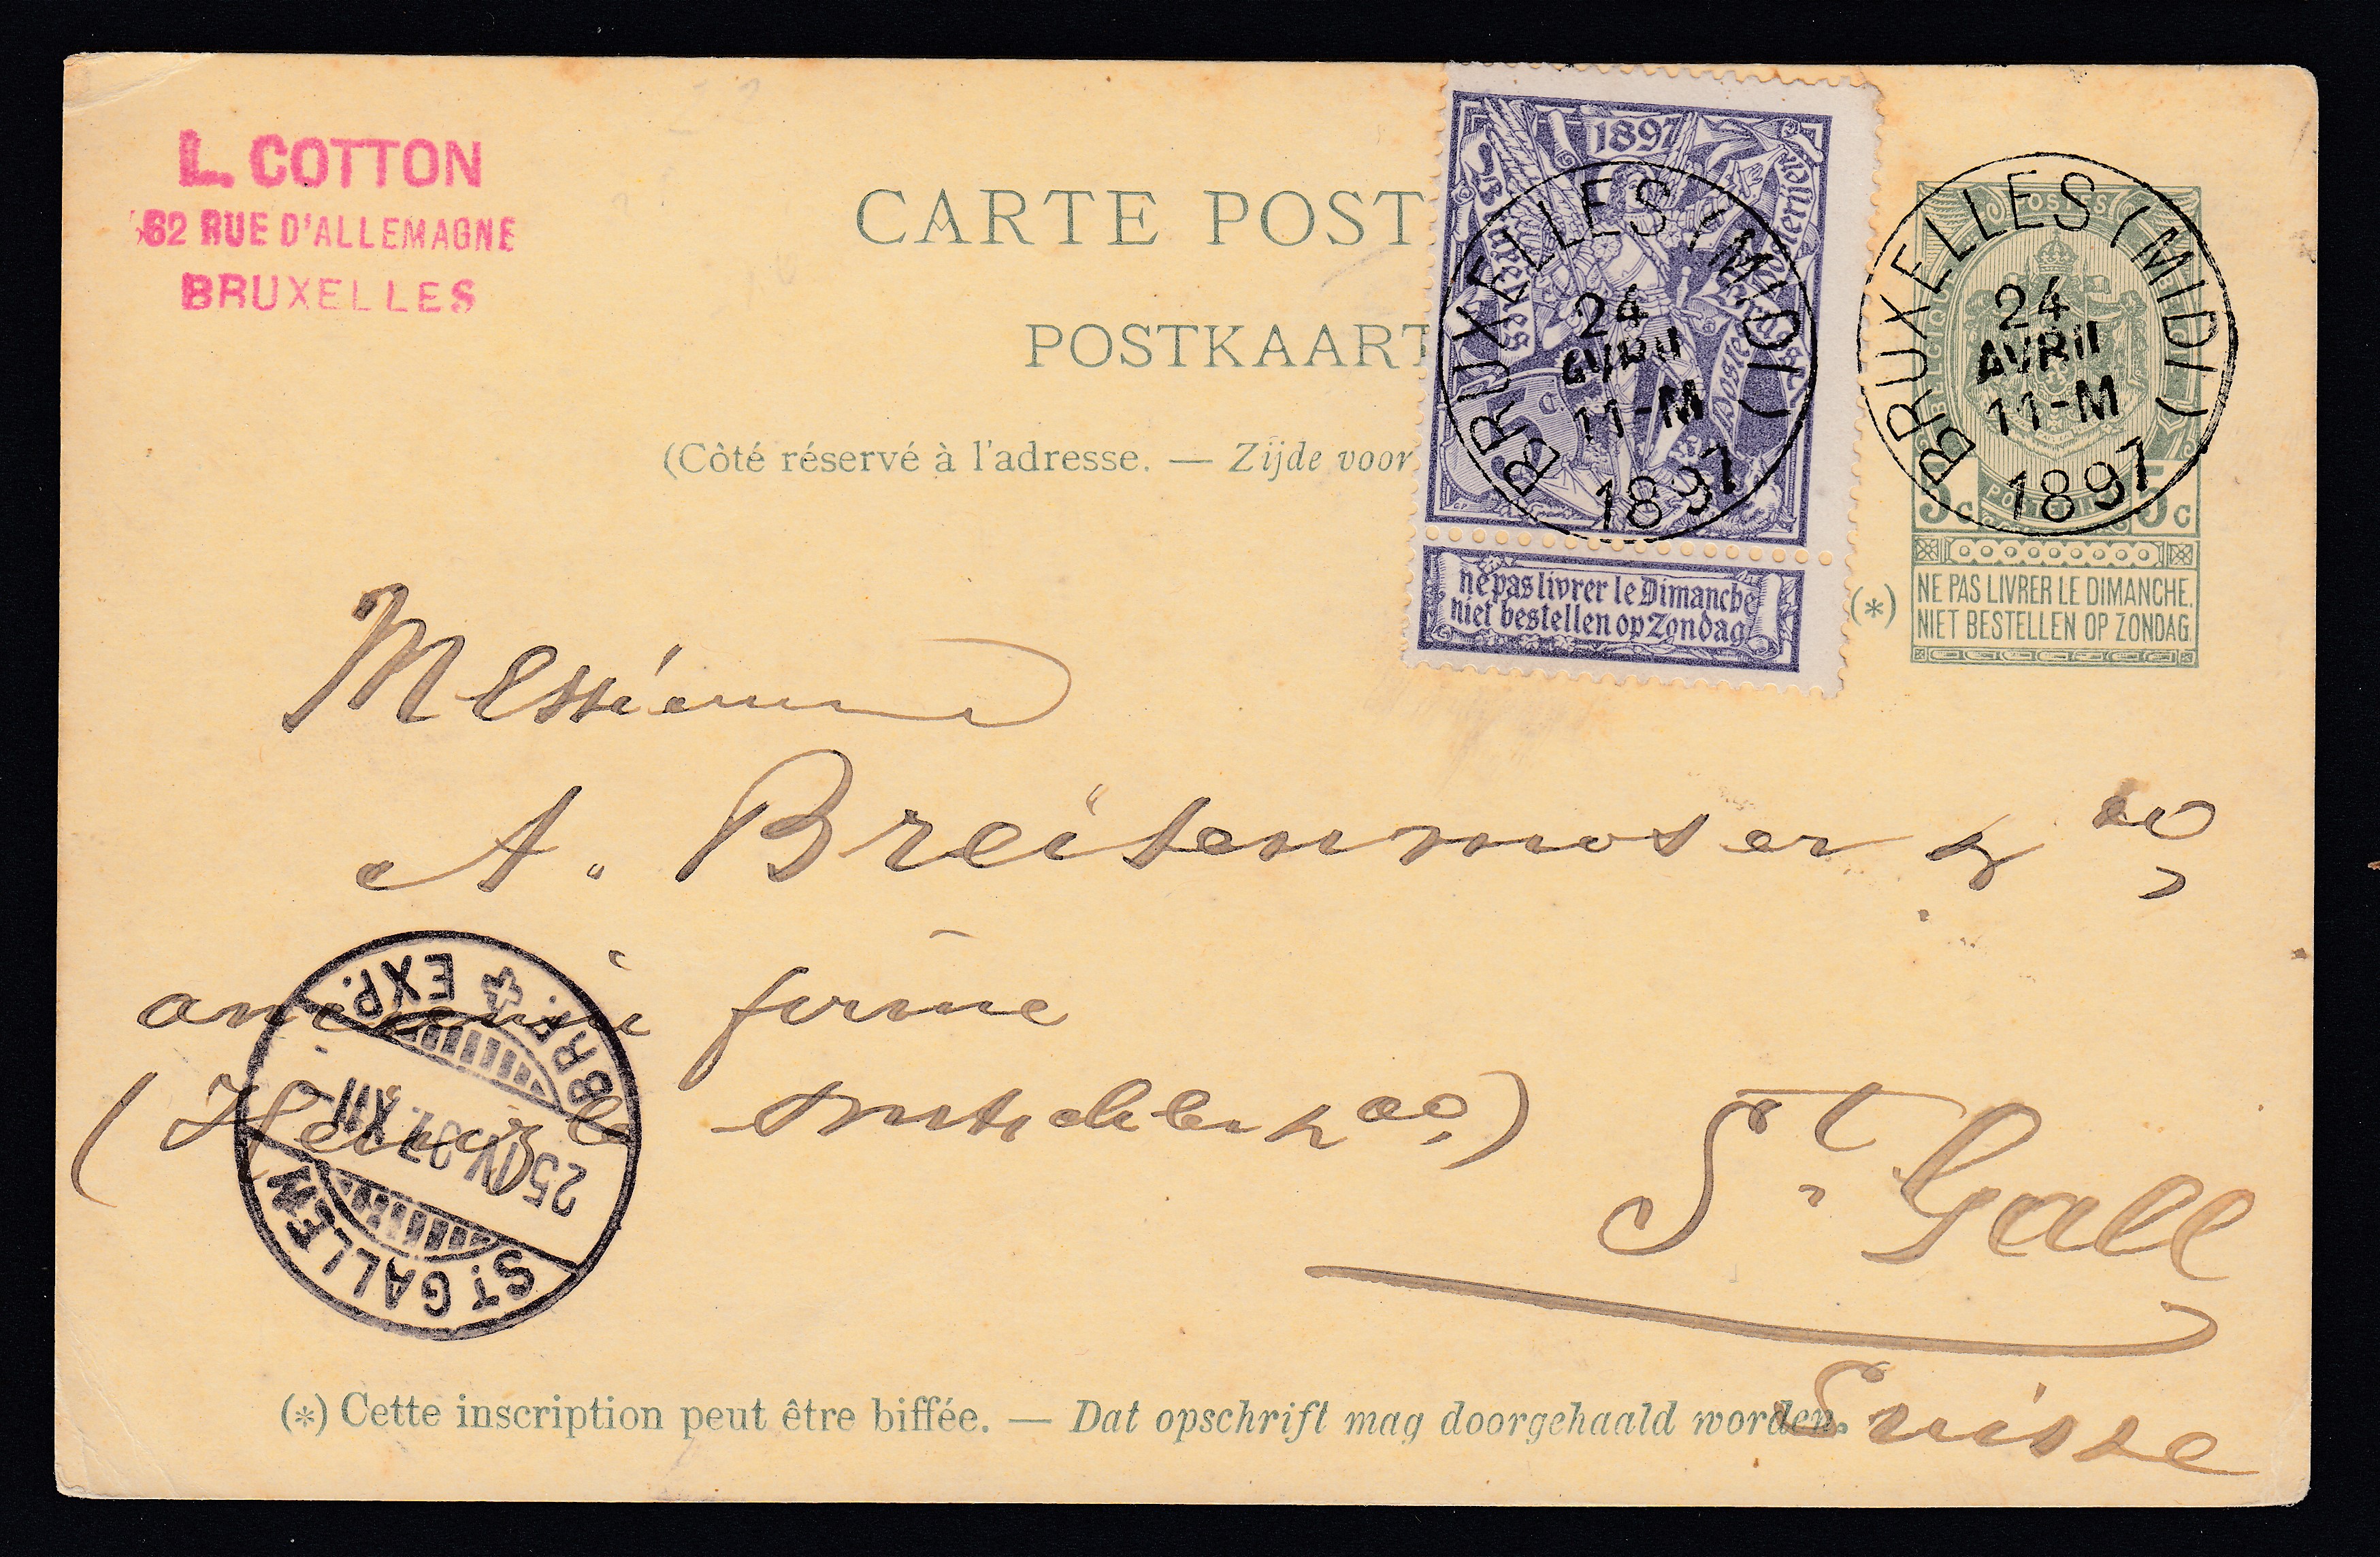 L. COTTON
62 RUE D'ALLEMAGNE
BRUXELLES
CARTE POST
POSTKAART
(Côté réservé à l'adresse. — Zijde voor
1897
5 c
BRUXELLES (MIDI)
24
AVRIL
11-M
1897
ne pas livrer le Dimanche
niet bestellen op Zondag
POSTES
BELGIQUE
BRUXELLES (MIDI)
24
AVRIL
11-M
1897
5c 5c
(*)
NE PAS LIVRER LE DIMANCHE.
NIET BESTELLEN OP ZONDAG.
Messieurs
A. Breitenmoser & Co,
ancienne firme
(
& Co,)
St. Gall
Suisse
ST. GALLEN
25 IV 97. XII-
BRF. EXP.
(*) Cette inscription peut être biffée. — Dat opschrift mag doorgehaald worden.